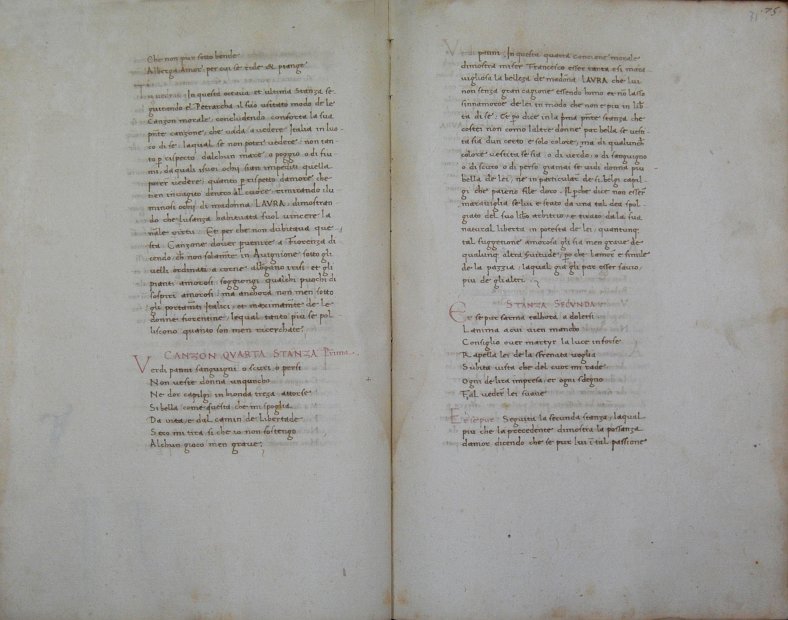 Che non pur sotto bende
Alberga Amor, per cui se ride et piange
In questa octava et ultima Stanza se
guitando el Petrarcha il suo usitato modo de le
Canzon morale, concludendo conforta la sua
pnte canzone, che vada a vedere Italia in luo
co di se, laqual se non potra vedere, non tan
to p respecto dalchun mare, o poggio o di fiu
mi, da quali i suoi ochij sian impediti quella
poter vedere, quanto p rispetto damore che
nen invagito dentro al cuore, rimirando i lu
minosi ochij di madonna LAVRA, dimostran
do che lusanza habituata suol vincere la
nale virtu. Et per che non dubitava que
sta Canzone dover pvenire a Fiorenza di
cendo, ch non solamte in Avignione sotto gli
velli ordinati a corne albergano risi et gli
pianti amorosi, soggiongi qualchi puochi di
sospiri amorosi, ma anchora non men sotto
gli portamti Italici, et maximamte de le
donne fiorentine, lequal tanto piu se pol
liscono quanto son men ricerchate.
CANZON QVARTA STANZA Prima.
Verdi panni sanguigni o scuri o persi
Non veste donna unquncho
Ne dor capilgi in bionda treza attorse
Si bella come questa che mi spoglia
Da vita e dal camin de libertade
Seco mi tira si che io non sostengo
Alchun gioco men grave;
75
Verdi panni. In questa quarta cancione morale
dimostra miser Francesco esser tanta et si mara
vigliosa la belleza de madona LAVRA che lui
non senza gran cagione essendo homo et no lasso
sinnamorose de lei in modo che non e piu in lib
ta di se. Et po dice in la pma pnte stanza che
costei non como laltre donne par bella se vesti
ta sia dun certo e solo colore, ma di qualunch
colore vestita se sia, o di verde, o di sanguigno
o di scuro, o di perso, giamai se vidi donna piu
bella de lei, ne in particulare de si belgi capil
gi che pareno file doro. Il pche dice non esser
maraviglia se lui e stato da una tal dea spol
giato del suo libo arbitrio, e tirato da la sua
natural liberta in potesta de lei, quantunq
tal suggetione amorosa gli sia men grave de
qualunq altera servitude, po che lamore e simile
de la pazzia, laquale gia gli par esser savio,
piu de gli altri.
STANZA SECVNDA.
Et se pur sarma talhora a dolersi
Lanima a cui vien mancho
Consiglio over martyr la luce in forse
Rapella lei de la sfrenata voglia
Subita vista che del cuor mi rade
Ogni delira impresa, et ogni sdegno
Fal veder lei suave
Et se pur. Seguita la secunda stanza, laqual
piu che la precedente dimostra la possanza
damor, dicendo che se pur lui i tal passione